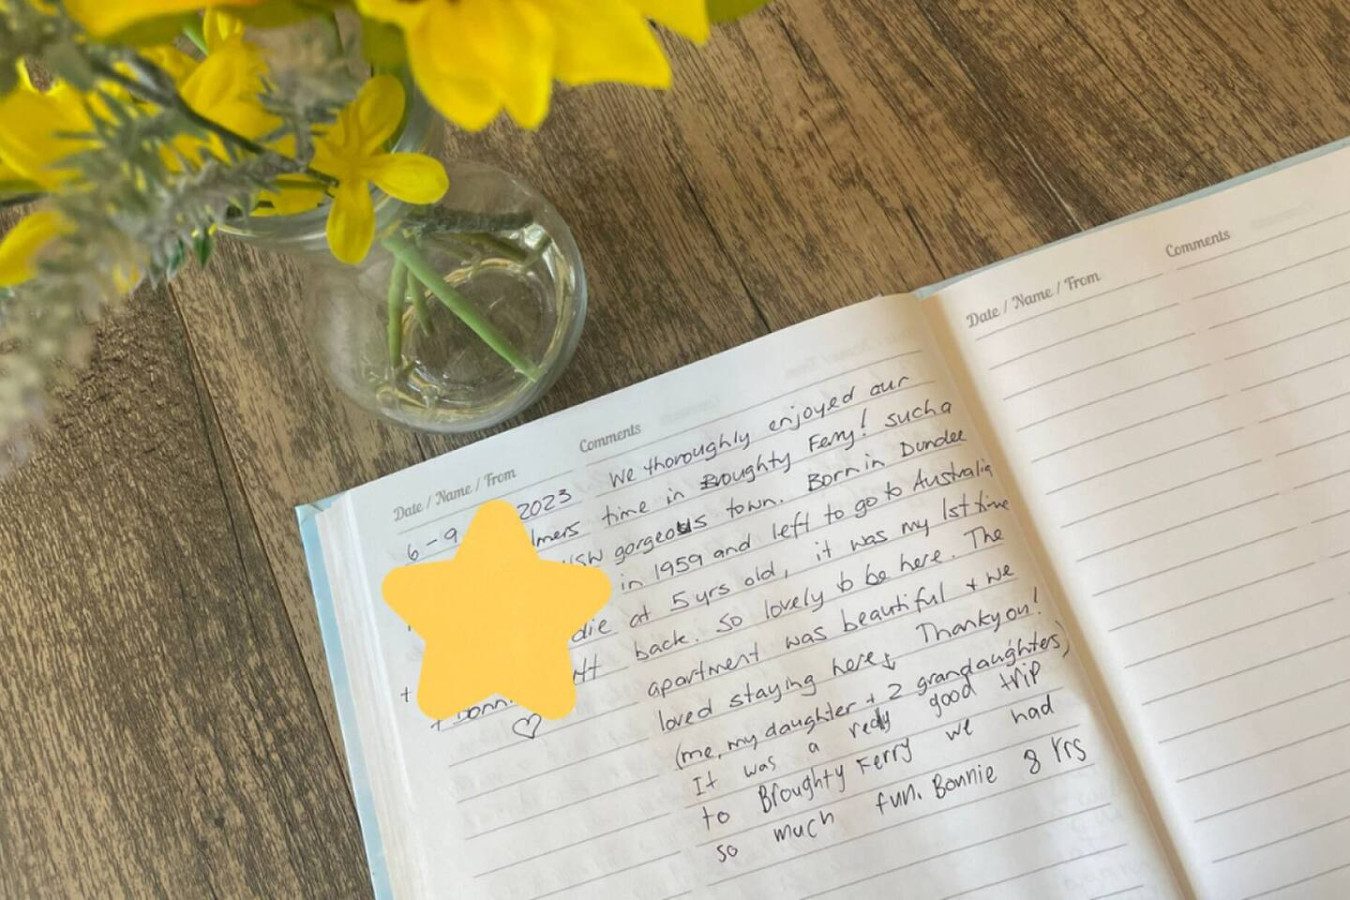 Date / Name / From
Comments
6 - 9 2023
lmers
NSW
die
NT
+
+ Bonni
We thoroughly enjoyed our
time in Broughty Ferry! such a
gorgeous town. Born in Dundee
in 1959 and left to go to Australia
at 5 yrs old, it was my 1st time
back. So lovely to be here. The
apartment was beautiful + we
loved staying here. Thankyou!
(me, my daughter + 2 grandaughters)
It was a really good trip
to Broughty Ferry we had
so much fun. Bonnie 8 Yrs
Date / Name / From
Comments